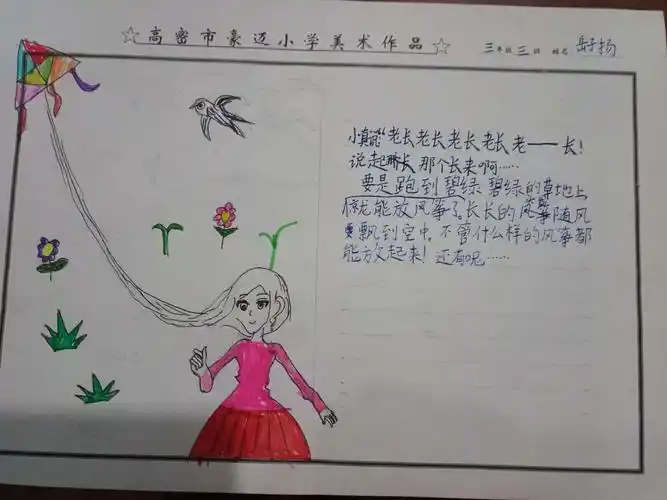 ☆高密市豪迈小学美术作品☆ 三年级三班 姓名
小真说“老长老长老长老长老——长!
说起那长那个长来啊……
要是跑到碧绿碧绿的草地上
就能放风筝了。长长的风筝随风
飘到空中。不管什么样的风筝都
能放起来!还有呢……